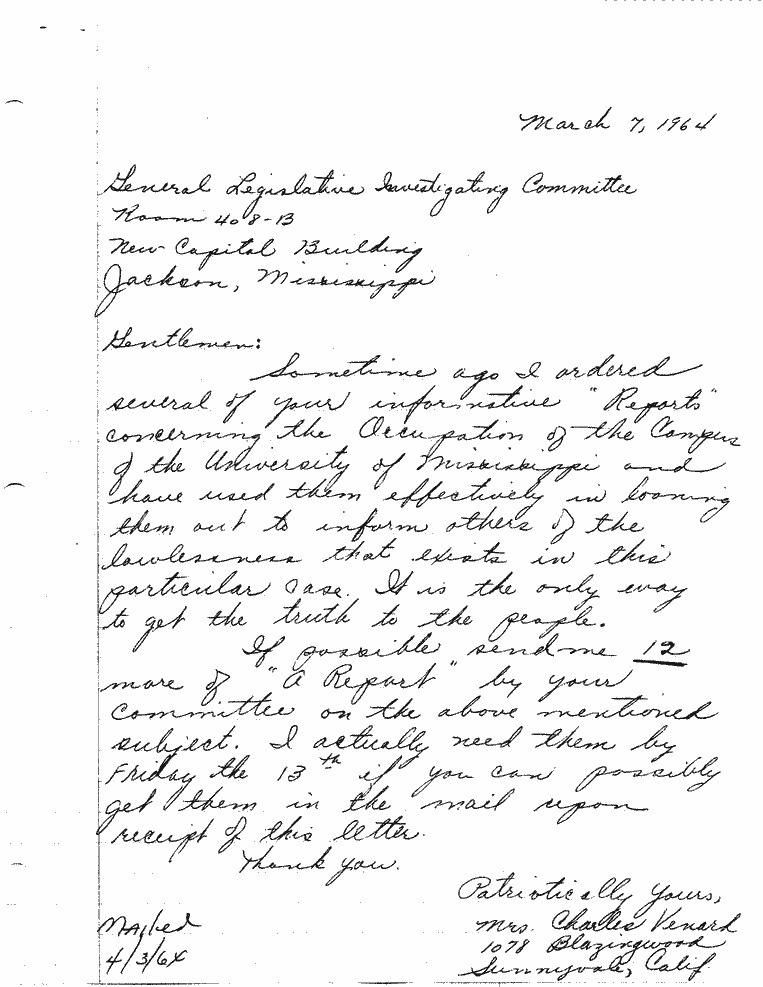 March 7, 1964
General Legislative Investigating Committee
Room 408-B
New Capitol Building
Jackson, Mississippi
Gentlemen:
Sometime ago I ordered
several of your informative "Reports"
concerning the Occupation of the Campus
of the University of Mississippi and
have used them effectively in loaning
them out to inform others of the
lawlessness that exists in this
particular case. It is the only way
to get the truth to the people.
If possible send me 12
more of "A Report" by your
Committee on the above mentioned
subject. I actually need them by
Friday the 13th if you can possibly
get them in the mail upon
receipt of this letter.
Thank you.
Patriotically Yours,
Mrs. Charles Venard
1078 Blazingwood
Sunnyvale, Calif.
Mailed
4/3/64